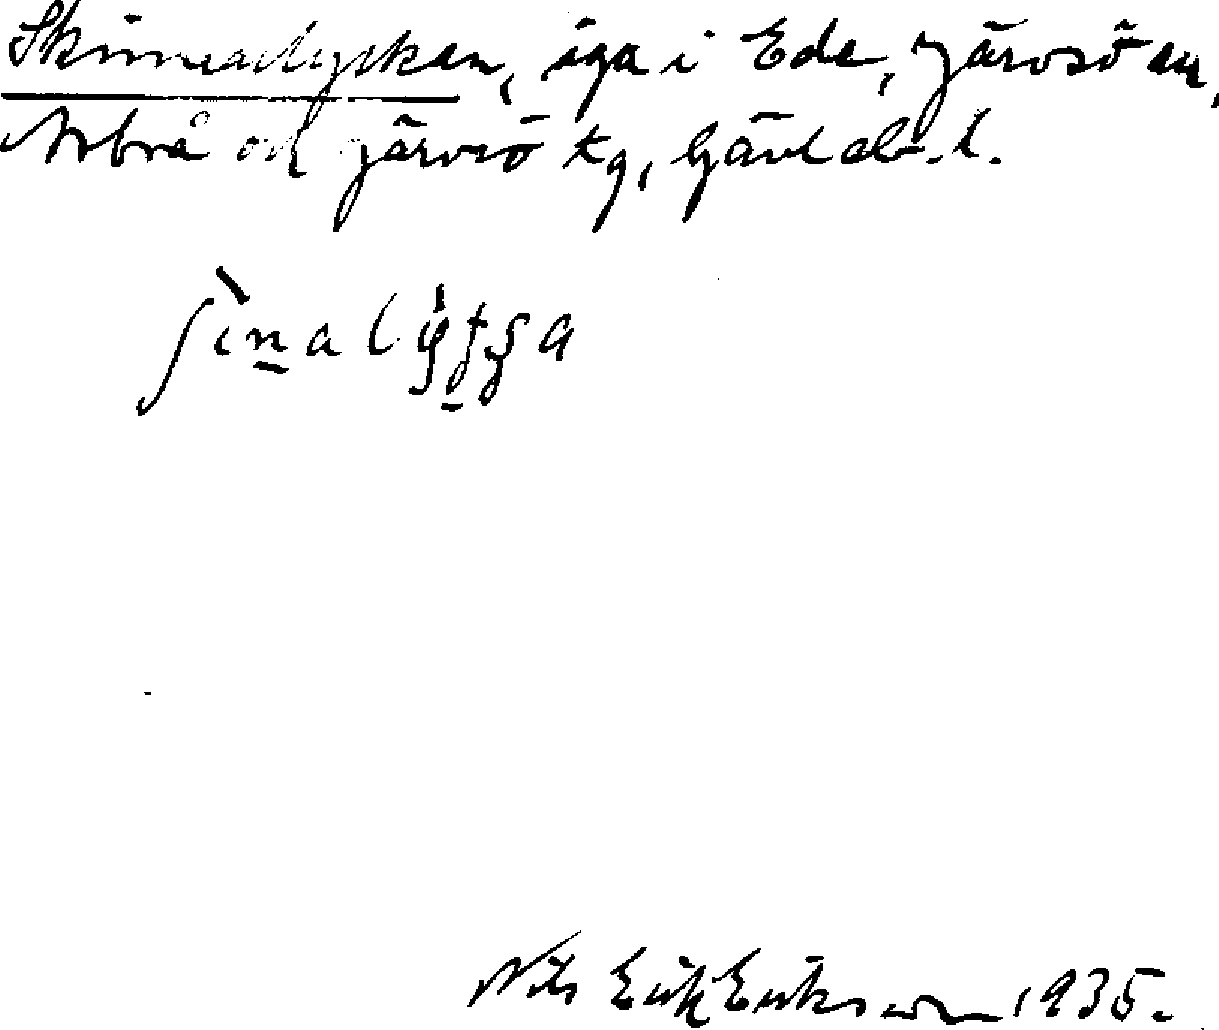 Skinnarlycken, äga i Ede, Järvsö sn,
Arbrå och Järvsö tg, Gävleb. l.
Nils Erik Eriksson 1935.